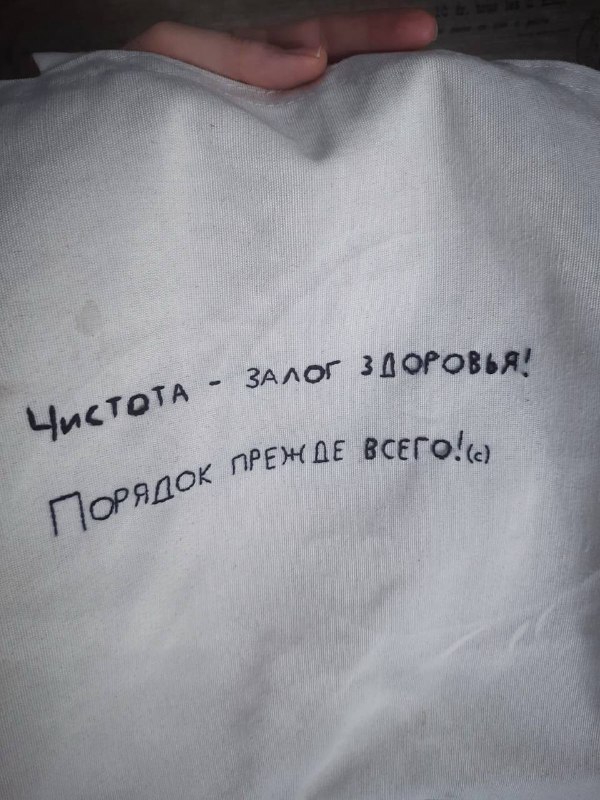 Чистота - залог здоровья!
Порядок прежде всего! (с)